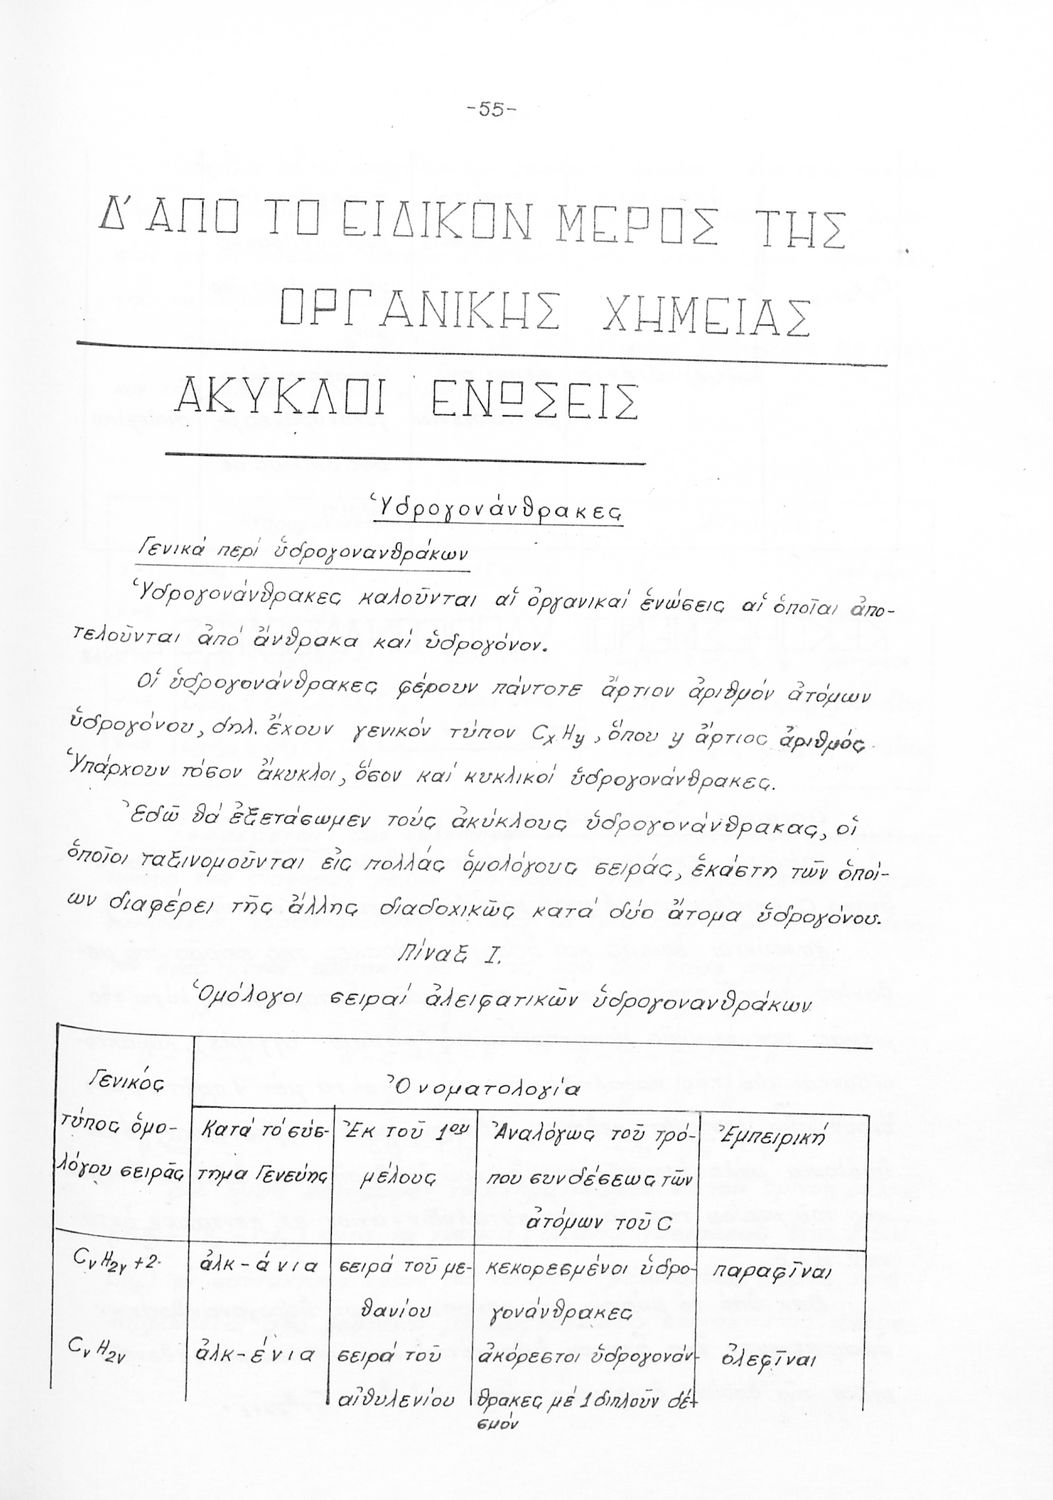 -55-
Δ' ΑΠΟ ΤΟ ΕΙΔΙΚΟΝ ΜΕΡΟΣ ΤΗΣ
ΟΡΓΑΝΙΚΗΣ ΧΗΜΕΙΑΣ
ΑΚΥΚΛΟΙ ΕΝΩΣΕΙΣ
Ὑδρογονάνθρακες
Γενικά περί ὑδρογονανθράκων
Ὑδρογονάνθρακες καλοῦνται αἱ ὀργανικαί ἑνώσεις αἱ ὁποῖαι ἀπο-
τελοῦνται ἀπό ἄνθρακα καί ὑδρογόνον.
Οἱ ὑδρογονάνθρακες φέρουν πάντοτε ἄρτιον ἀριθμόν ἀτόμων
ὑδρογόνου, δηλ. ἔχουν γενικόν τύπον CxHy, ὅπου y ἄρτιος ἀριθμός.
Ὑπάρχουν τόσον ἄκυκλοι, ὅσον καί κυκλικοί ὑδρογονάνθρακες.
Ἐδῶ θά ἐξετάσωμεν τούς ἀκύκλους ὑδρογονάνθρακας, οἱ
ὁποῖοι ταξινομοῦνται εἰς πολλάς ὁμολόγους σειράς, ἑκάστη τῶν ὁποί-
ων διαφέρει τῆς ἄλλης διαδοχικῶς κατά δύο ἄτομα ὑδρογόνου.
Πίναξ I.
Ὁμόλογοι σειραί ἀλειφατικῶν ὑδρογονανθράκων
Γενικός
τύπος ὁμο-
λόγου σειρᾶς
Ὀνοματολογία
Κατά τό σύσ-
τημα Γενεύης
Ἐκ τοῦ 1ου
μέλους
Ἀναλόγως τοῦ τρό-
που συνδέσεως τῶν
ἀτόμων τοῦ C
Ἐμπειρική
CνH2ν+2.
ἀλκ-άνια
σειρά τοῦ με-
θανίου
κεκορεσμένοι ὑδρο-
γονάνθρακες
παραφῖναι
CνH2ν
ἀλκ-ένια
σειρά τοῦ
αἰθυλενίου
ἀκόρεστοι ὑδρογονάν-
θρακες μέ 1 διπλοῦν δε-
σμόν
ὀλεφῖναι